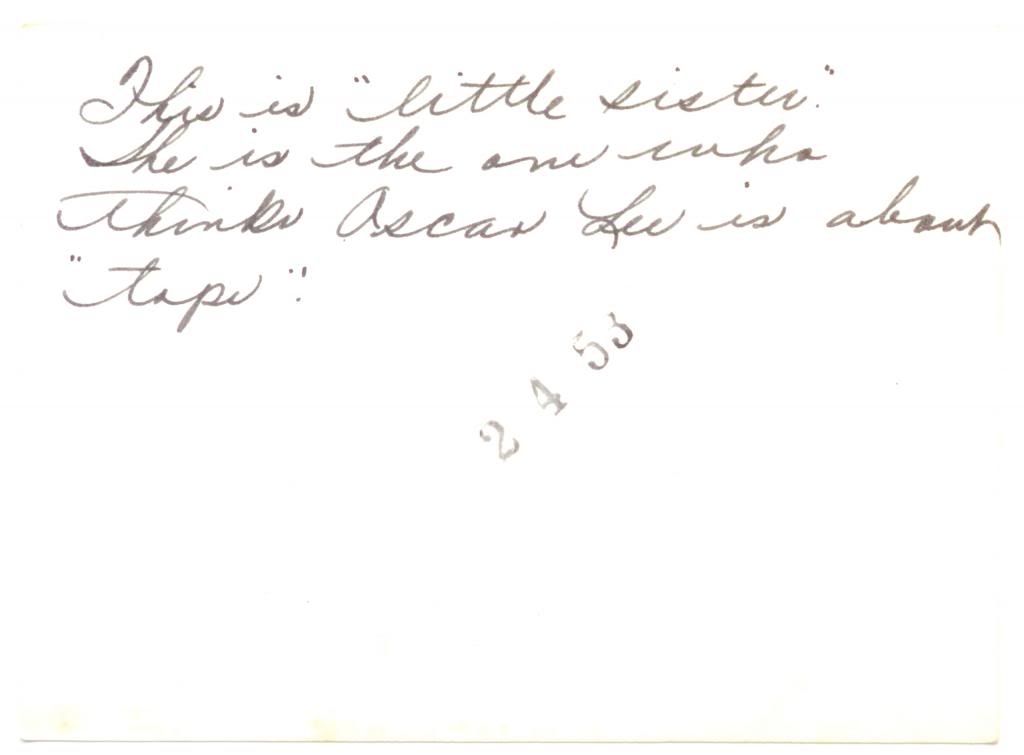 This is "little sister."
She is the one who
thinks Oscar Lee is about
"tops".
2 4 53